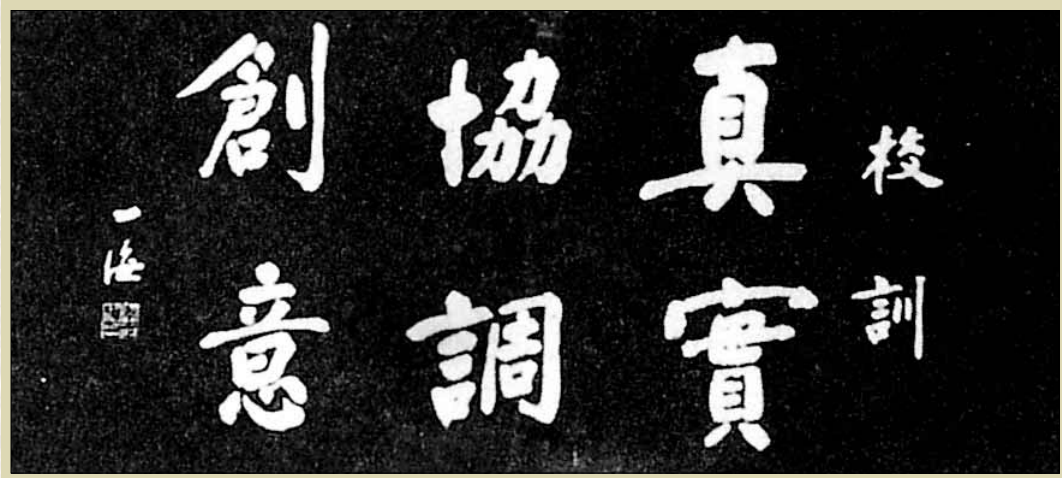 校訓
真實
協調
創意
一海